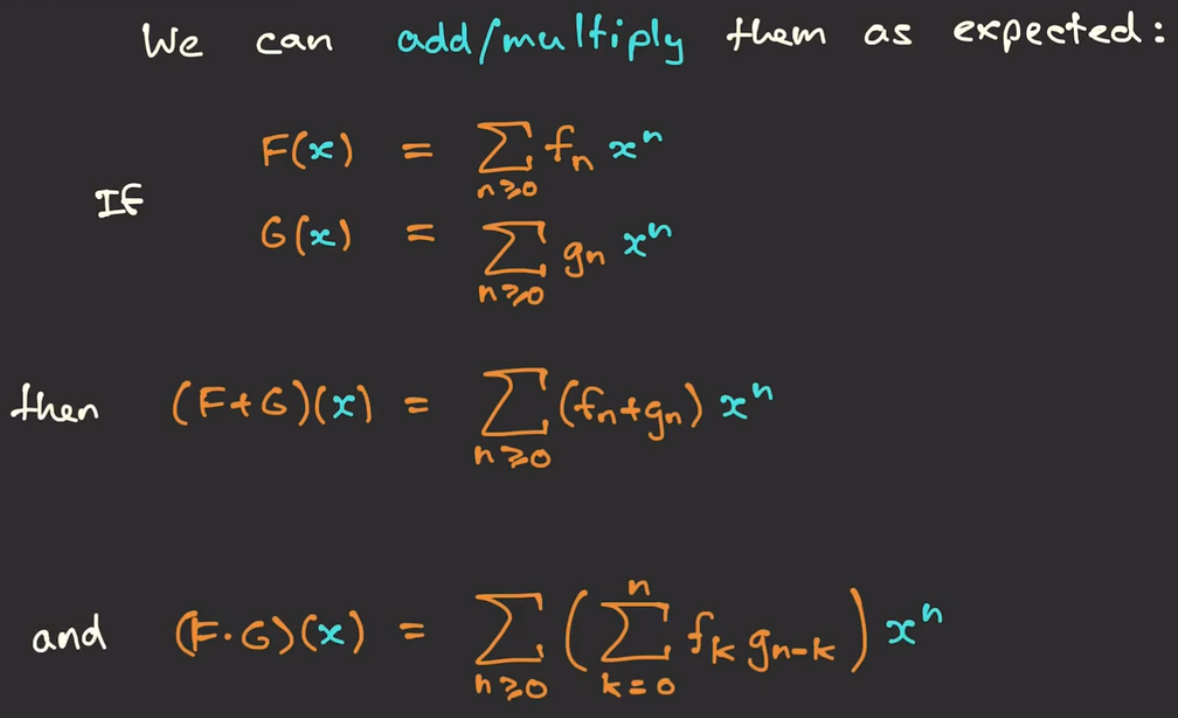 We can add/multiply them as expected:
F(x) = ∑_{n≥0} fₙ xⁿ
If
G(x) = ∑_{n≥0} gₙ xⁿ
then (F+G)(x) = ∑_{n≥0} (fₙ+gₙ) xⁿ
and (F·G)(x) = ∑_{n≥0} (∑_{k=0}^{n} f_k g_{n-k}) xⁿ